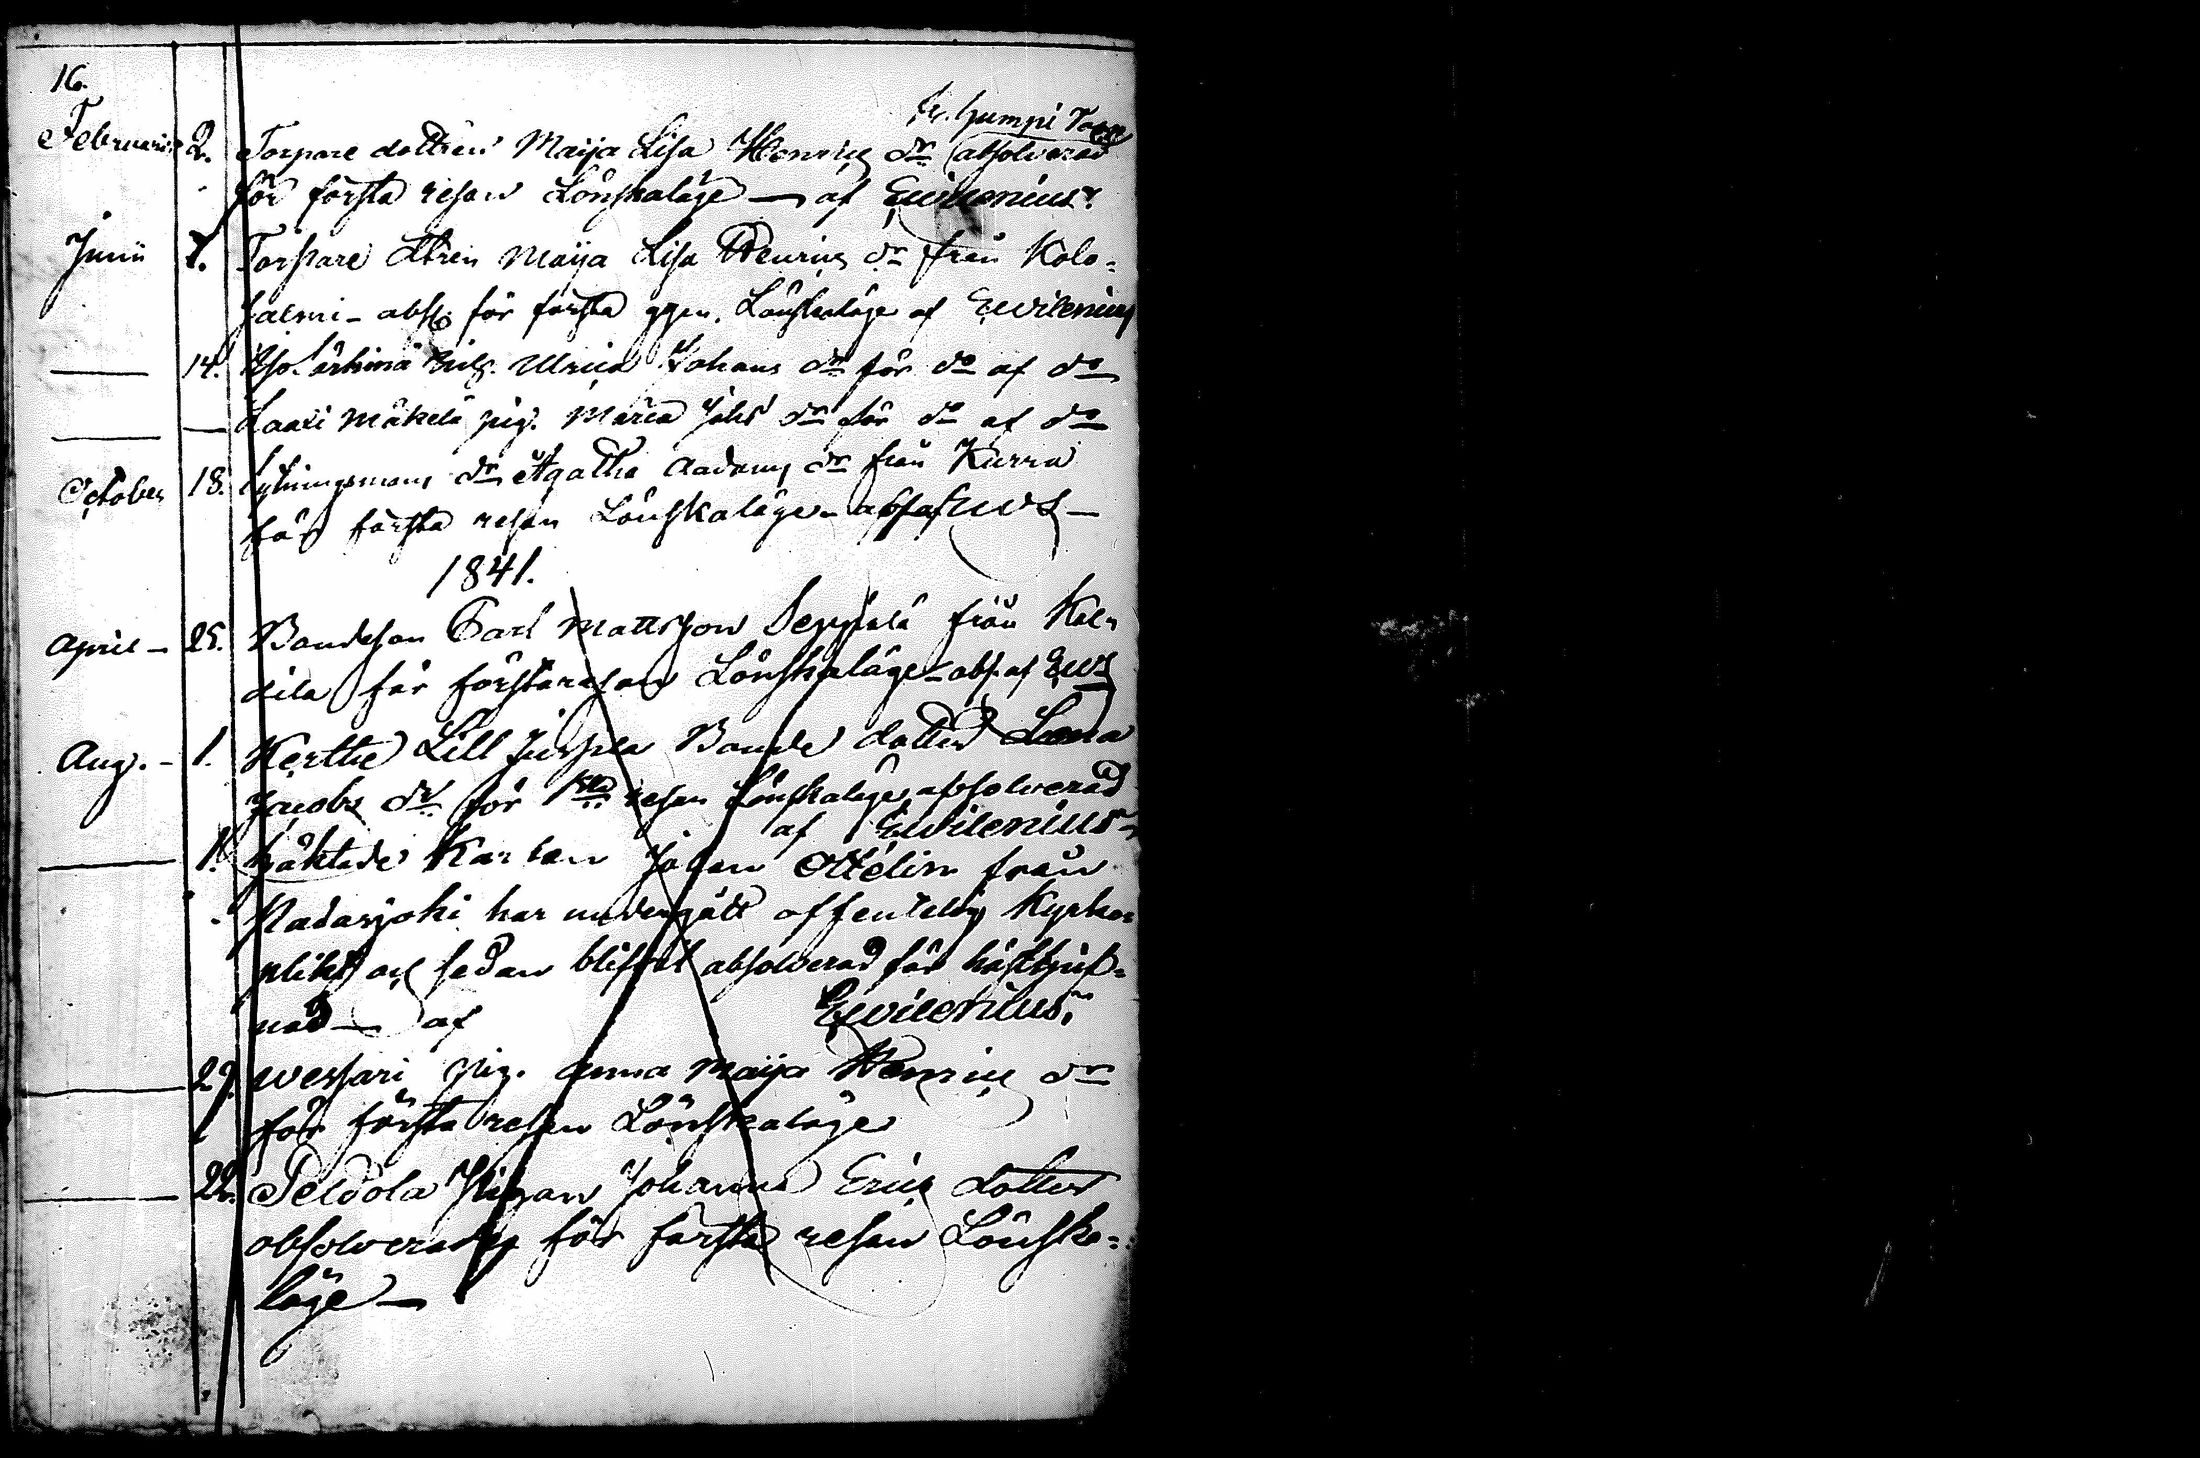 16.
fr. Humpi Torp
Februarii 2. Torpare dottren Maija Lisa Henrics dr absolverad
för första resan Lönskaläge — af Ewilenius.
Junii 7. Torpare dttren Maija Lisa Henrics dr från Kolo-
halmi - abs. för första ggen. Lönskaläge af Ewilenius
— 14. pig. Ulrica Johans dr för do af do
— — Laari Mäkelä pig. Maria Johs dr för do af do
October 18. dr Agatha Aadams dr från Kurra
för första resan Lönskaläge - abs af EWS —
1841.
April - 25. Bondeson Carl Mattsson Seppälä från Kel-
dila för första resan Lönskaläge - abs. af EWS
Aug. - 1. Kertte Lill Juspla Bonde dotter Lena
Jacobs dr för 1sta resan Lönskaläge absolverad
af Ewilenius -
— 1. häktade Karlen Johan Ottelin från
Padasjoki har undergått offentelig Kyrko-
plikt och sedan blifvit absolverad för hästtjuf-
nad — af Ewilenius.
— 29. Wessari pig. Anna Maija Henrics dr
för första resan Lönskaläge
— 22. Peldola Pigan Johanna Erics dotter
absolverad för första resan Lönska-
läge —